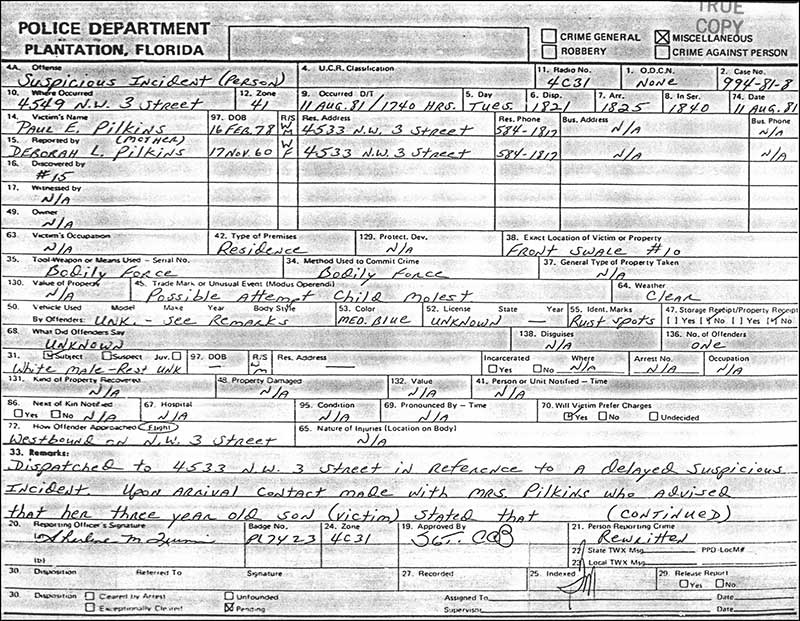 TRUE
COPY
POLICE DEPARTMENT
PLANTATION, FLORIDA
CRIME GENERAL MISCELLANEOUS
ROBBERY CRIME AGAINST PERSON
4A. Offense 4. U.C.R. Classification 11. Radio No. 1. O.D.C.N. 2. Case No.
Suspicious Incident (Person) 4C31 None 994-81-8
10. Where Occurred 12. Zone 9. Occurred D/T 5. Day 6. Disp. 7. Arr. 8. In Ser. 74. Date
4549 N.W. 3 Street 41 11 Aug. 81/1740 HRS. Tues. 1821 1825 1840 11 Aug. 81
14. Victim's Name 97. DOB R/S Res. Address Res. Phone Bus. Address Bus. Phone
Paul E. Pilkins 16 Feb. 78 W M 4533 N.W. 3 Street 584-1817 N/A N/A
15. Reported by (Mother)
Deborah L. Pilkins 17 Nov. 60 W F 4533 N.W. 3 Street 584-1817 N/A N/A
16. Discovered by
#15
17. Witnessed by
N/A
49. Owner
N/A
63. Victim's Occupation 42. Type of Premises 129. Protect. Dev. 38. Exact Location of Victim or Property
N/A Residence N/A Front Swale #10
35. Tool-Weapon or Means Used - Serial No. 34. Method Used to Commit Crime 37. General Type of Property Taken
Bodily Force Bodily Force N/A
130. Value of Property 45. Trade Mark or Unusual Event (Modus Operendi) 64. Weather
N/A Possible Attempt Child Molest Clear
50. Vehicle Used Model Make Year Body Style 53. Color 52. License State Year 55. Ident. Marks 47. Storage Receipt/Property Receipt
By Offenders: Unk. - See Remarks Med. Blue Unknown — Rust Spots [ ] Yes [✓] No [ ] Yes [✓] No
68. What Did Offenders Say 138. Disguises 136. No. of Offenders
Unknown N/A One
31. Subject Suspect Juv. 97. DOB R/S Res. Address Incarcerated Where Arrest No. Occupation
White Male - Rest Unk W M Yes No N/A N/A N/A
131. Kind of Property Recovered 48. Property Damaged 132. Value 41. Person or Unit Notified - Time
N/A N/A N/A N/A
86. Next of Kin Notified 67. Hospital 95. Condition 69. Pronounced By - Time 70. Will Victim Prefer Charges
Yes No N/A N/A N/A N/A Yes No Undecided
72. How Offender Approached Flight 65. Nature of Injuries (Location on Body)
Westbound on N.W. 3 Street N/A
33. Remarks:
Dispatched to 4533 N.W. 3 Street in reference to a delayed suspicious
incident. Upon arrival contact made with Mrs. Pilkins who advised
that her three year old son (victim) stated that (continued)
20. Reporting Officer's Signature Badge No. 24. Zone 19. Approved By 21. Person Reporting Crime
PL7423 4C31 Sgt. Rewritten
22. State TWX Msg. PPD-LocM#
(b) 23. Local TWX Msg.
30. Disposition Referred To Signature 27. Recorded 25. Indexed 29. Release Report
Yes No
30. Disposition Cleared by Arrest Unfounded Assigned To Date
Exceptionally Cleared Pending Supervisor Date